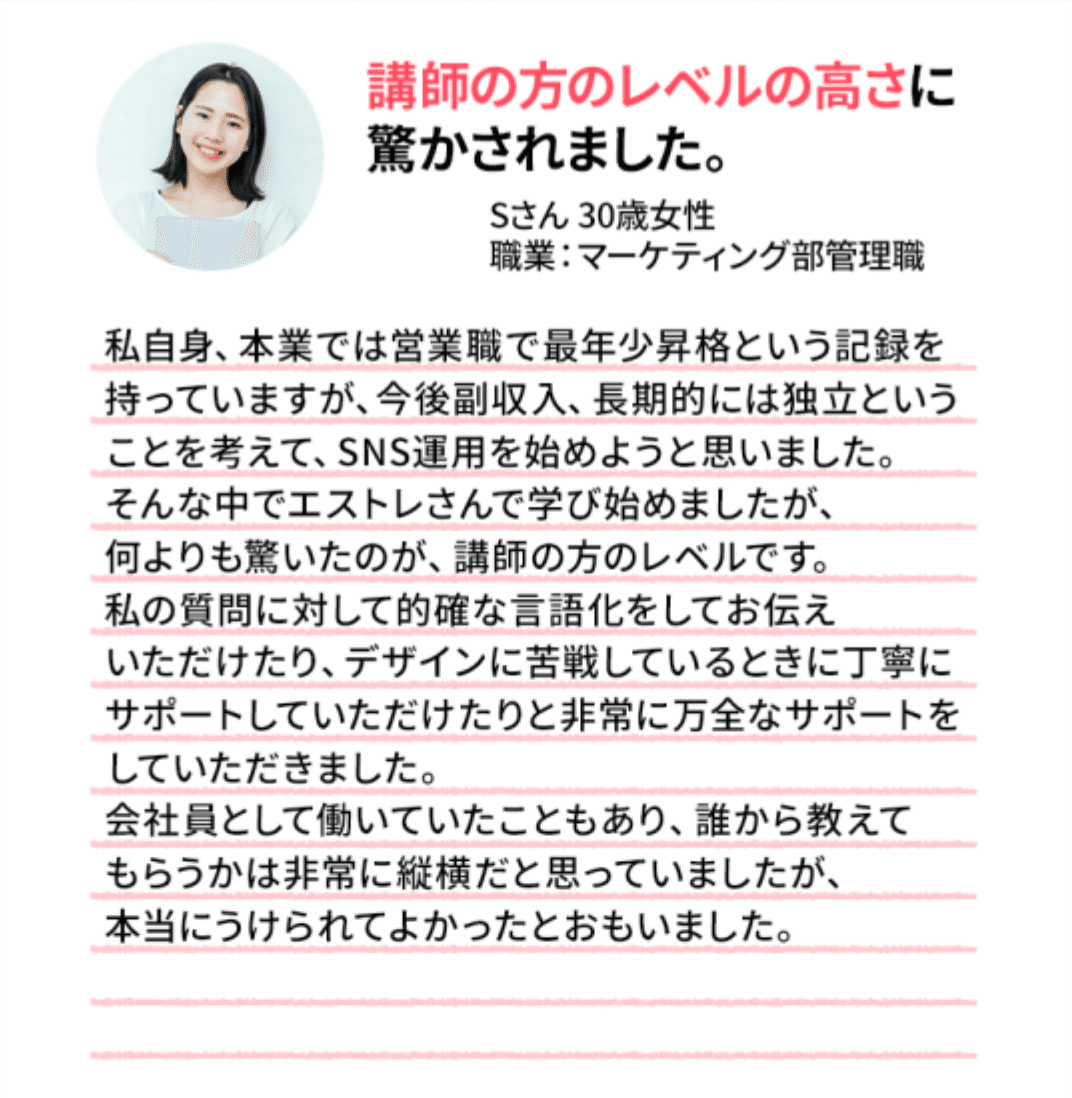 講師の方のレベルの高さに
驚かされました。
Sさん 30歳女性
職業：マーケティング部管理職
私自身、本業では営業職で最年少昇格という記録を
持っていますが、今後副収入、長期的には独立という
ことを考えて、SNS運用を始めようと思いました。
そんな中でエストレさんで学び始めましたが、
何よりも驚いたのが、講師の方のレベルです。
私の質問に対して的確な言語化をしてお伝え
いただけたり、デザインに苦戦しているときに丁寧に
サポートしていただけたりと非常に万全なサポートを
していただきました。
会社員として働いていたこともあり、誰から教えて
もらうかは非常に縦横だと思っていましたが、
本当にうけられてよかったとおもいました。